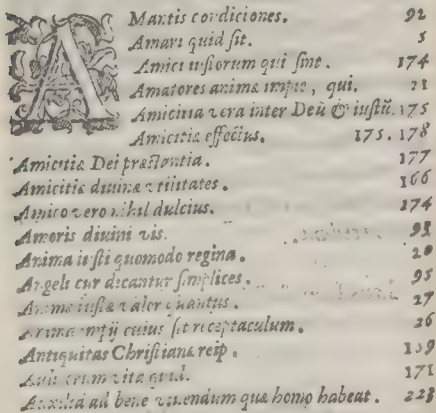 AMantis condiciones. 92
Amari quid sit. 5
Amici iustorum qui sint. 174
Amatores animæ impiæ, qui. 21
Amicitia vera inter Deũ & iustũ. 175
Amicitiæ effectus. 175. 178
Amicitiæ Dei præstantia. 177
Amicitiæ diuinæ vtilitates. 166
Amico vero nihil dulcius. 174
Amoris diuini vis. 93
Anima iusti quomodo regina. 20
Angeli cur dicantur simplices. 95
Animæ iustæ valor quantus. 27
Anima impij cuius sit receptaculum. 26
Antiquitas Christianæ reip. 139
vita quid. 171
Auxilia ad bene viuendum quæ homo habeat. 223